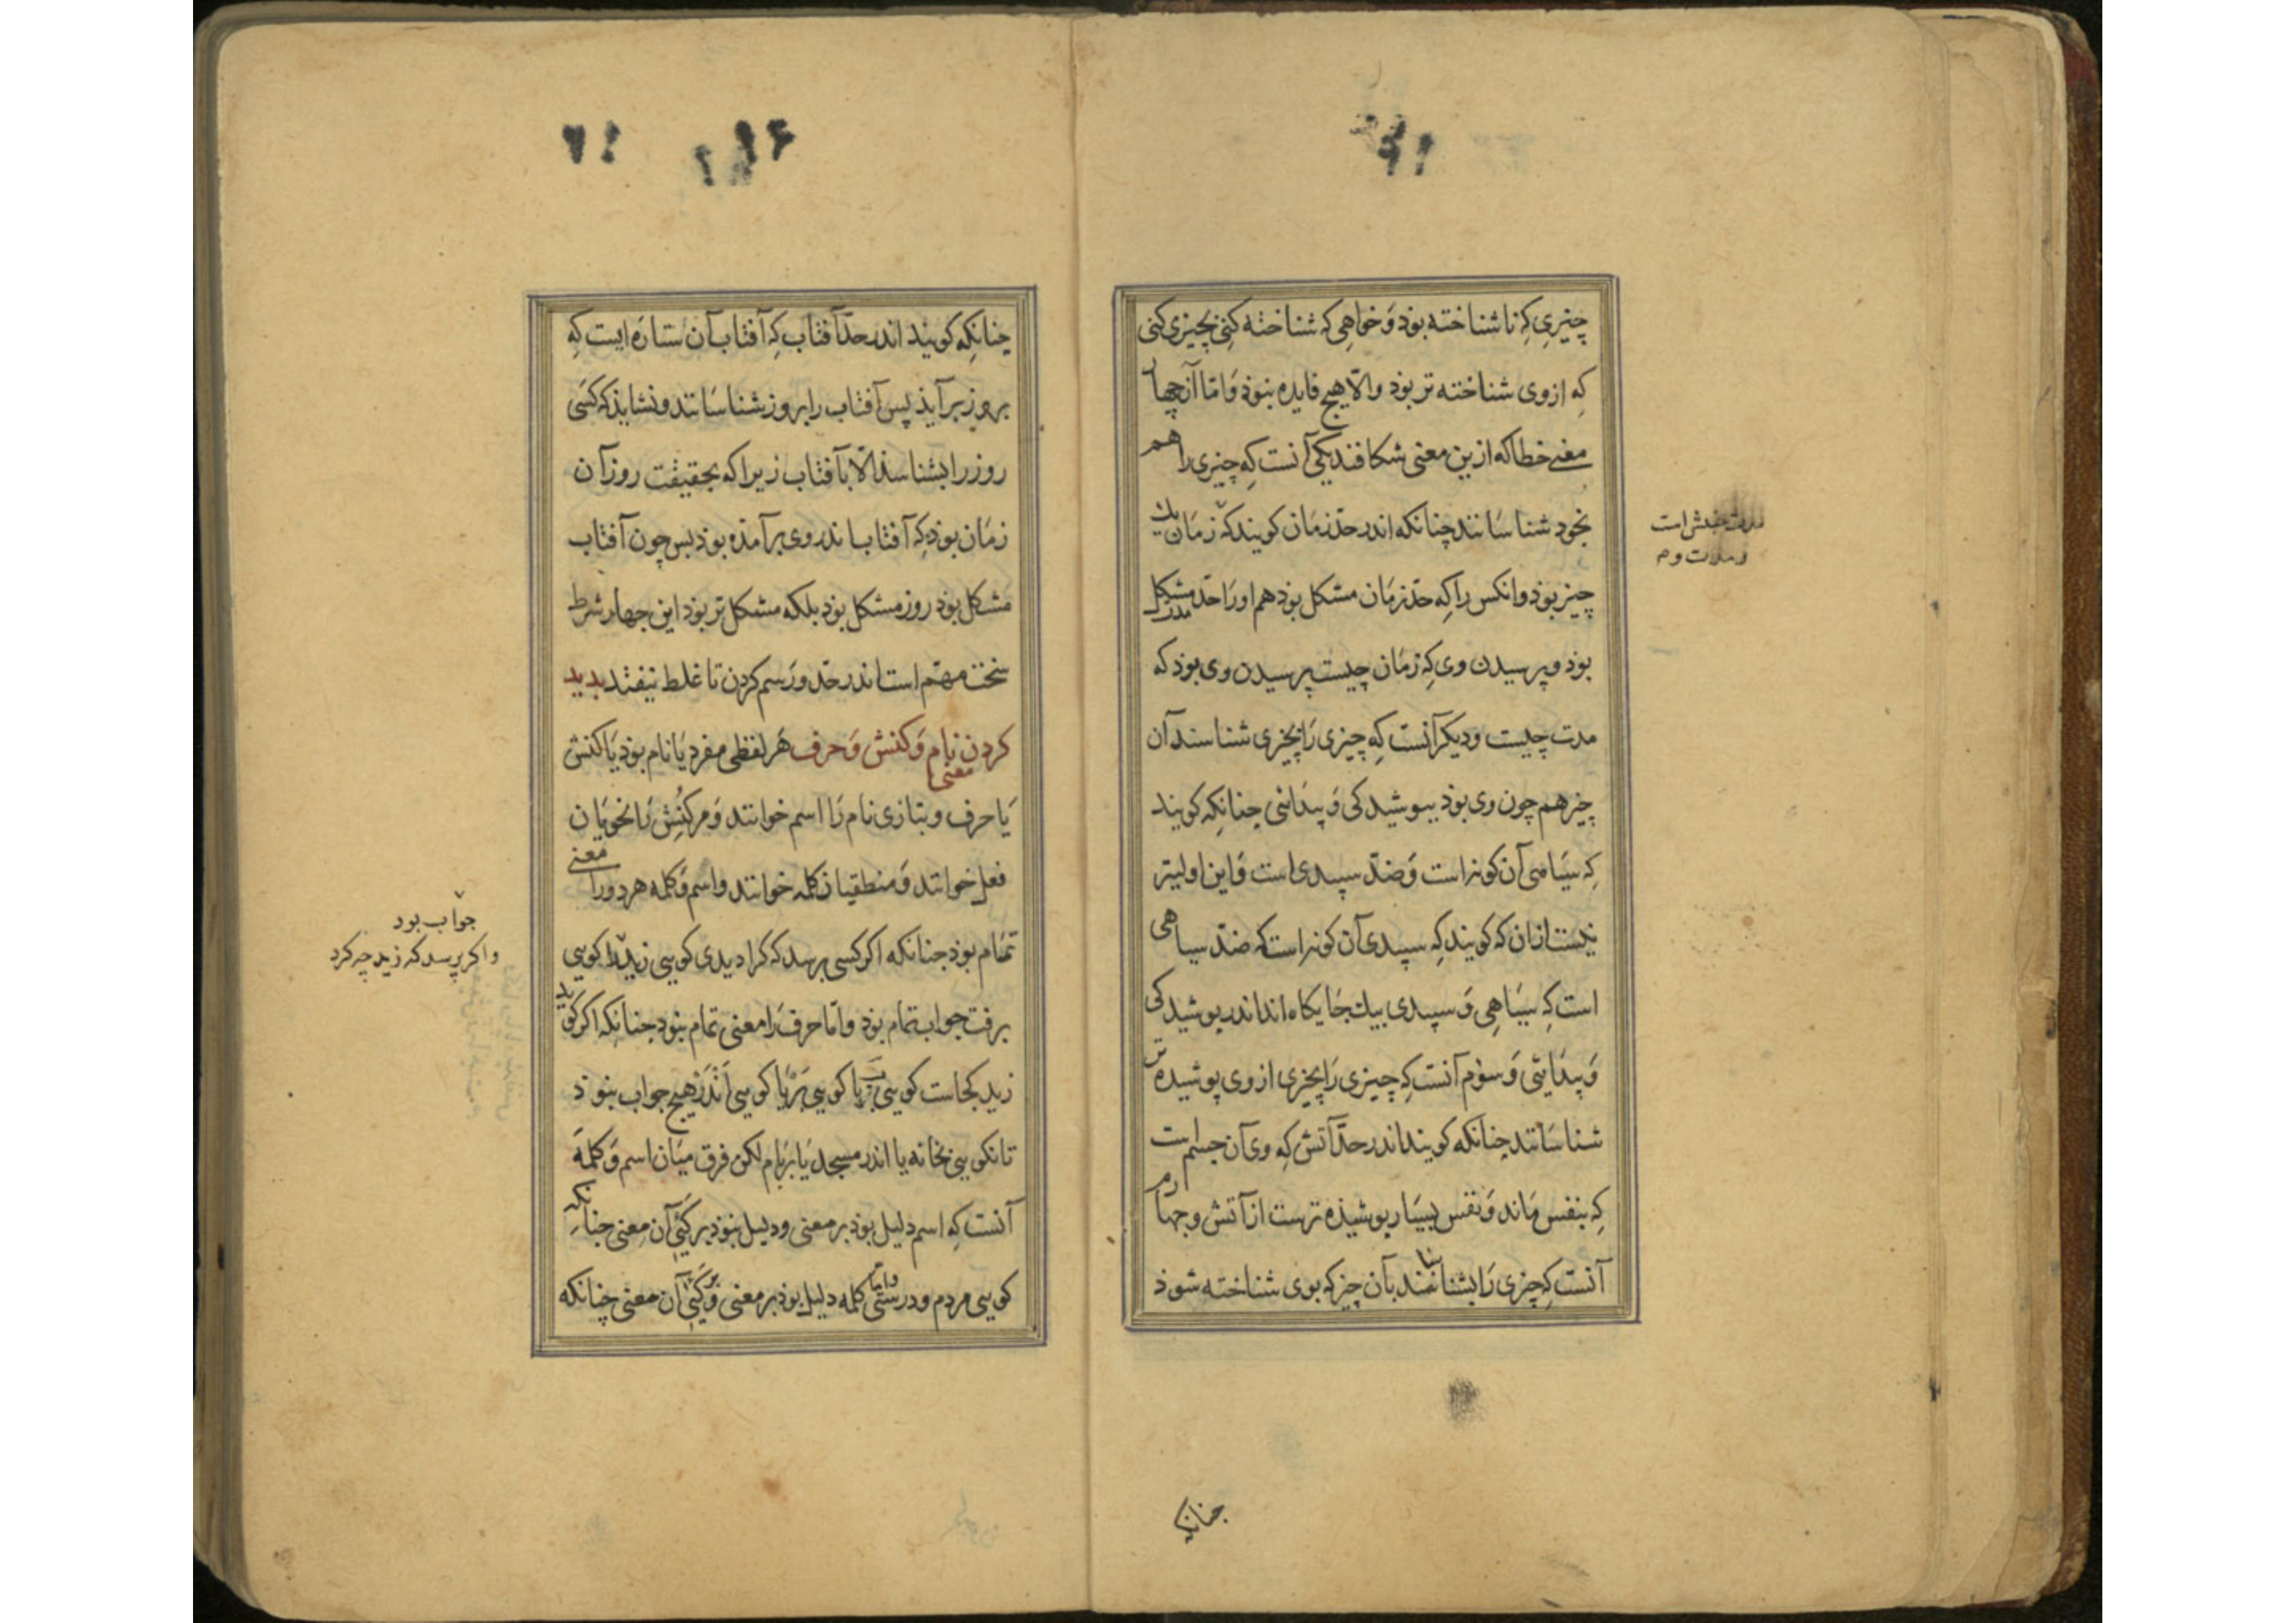 چیزی که ناشناخته بوذ و خواهی که شناخته کنی بچیزی کنی
که از وی شناخته تر بوذ والّا هیچ فایده نبوذ و امّا آن چهار
معنی خطا که ازین معنی شکافند یکی آنست که چیزی را هم
بخود شناسانند چنانکه اندر حدّ زمان کویند که زمان
چیز بوذ و انکس را که حدّ زمان مشکل بوذ هم او را حدّ مشکل
بوذ و پرسیدن وی که زمان چیست پرسیدن وی بوذ که
مدت چیست و دیکر آنست که چیزی را بچیزی شناسند آن
چیز هم چون وی بوذ ببوشیدکی و پیدائی چنانکه کویند
که سیاهی آن کونه است و ضدّ سپیدی است و این اولیتر
نیست ازان که کویند که سپیدی آن کونه است که ضدّ سیاهی
است که سیاهی و سپیدی بیك جایکاه اند اندر پوشیدکی
و پیدائی و سوم آنست که چیزی را بچیزی از وی پوشیده تر
شناسانند چنانکه کویند اندر حدّ آتش که وی آن جسم است
که بنفس ماند و نفس بسیار پوشیذه ترست از آتش و چهارم
آنست که چیزی را بشناسانند بآن چیز که بوی شناخته شوذ
مدت
ومدت وم
چنانکه
چنانکه کویند اندر حدّ آفتاب که آفتاب آن ستاره ایست که
بروز برآیذ پس آفتاب را بروز شناسانند و نشایذ که کسی
روز را بشناسذ الّا بآفتاب زیرا که بحقیقت روز آن
زمان بوذ که آفتاب اندر وی برآمذه بوذ بس چون آفتاب
مشکل بوذ روز مشکل بوذ بلکه مشکل تر بوذ این چهار شرط
سخت مهّم است اندر حدّ و رسم کردن تا غلط نیفتد بدید
کردن معنی نام و کنش و حرف هر لفظی مفرد یا نام بوذ یا کنش
یا حرف و بتازی نام را اسم خوانند و مر کنش را نحویان
فعل خوانند و منطقیان کلمه خوانند و اسم و کلمه هر دو را معنی
تمام بوذ چنانکه اکر کسی برسد که کرا دیدی کویی زید را کویی
برفت جواب تمام بوذ و امّا حرف را معنی تمام نبود چنانکه اکر کوید
زید کجاست کویی به یا کویی بر یا کویی اندر هیچ جواب نبوذ
تا نکویی بخانه یا اندر مسجد یا بر بام لکن فرق میان اسم و کلمه
آنست که اسم دلیل بوذ بر معنی و دلیل نبوذ بر کیئی آن معنی چنانکه
کویی مردم و درستی و امّا کلمه دلیل بوذ بر معنی و بر کیئی آن معنی چنانکه
جواب بود
و اکر پرسد که زید چه کرد